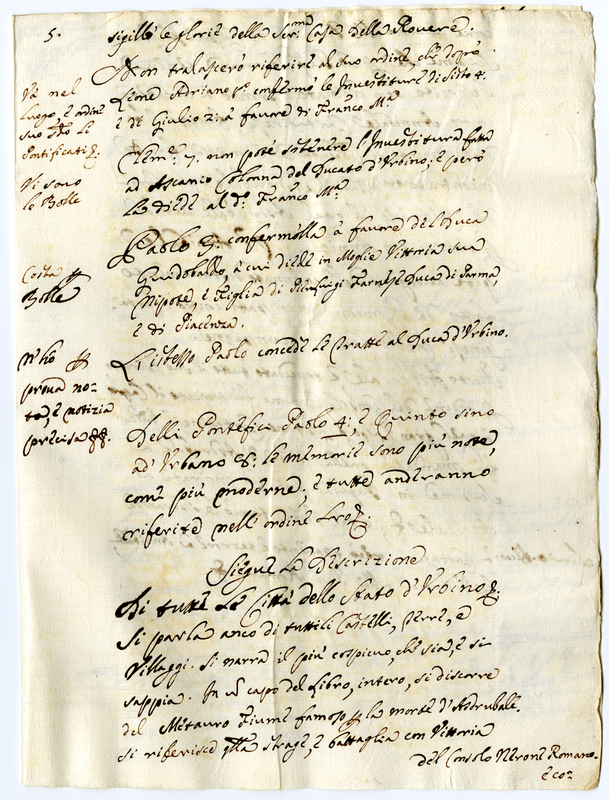 5.
sigillò le glorie della Ser.ma Casa Della Rovere.
Non tralascerò riferire al suo ordine, che dopò
Lione Adriano po. confermò le Investiture di Sisto 4.
e di Giulio 2: à favore di Franco Ma.
Và nel
luogo, e ordine
suo le
Pontificati
Clem.e 7. non potè sostenere l'Investitura fatta
ad Ascanio Colonna del Ducato d'Urbino; e però
La diede al do. Franco Ma.
Vi sono
le Bolle
Paolo 3: confermolla à favore del Duca
Guidobaldo, à cui diede in Moglie Vittoria sua
Nipote, e Figlia di Pierluigi Farnese Duca di Parma,
e di Piacenza.
Costa
Bolle
L'istesso Paolo concede le tratte al Duca d'Urbino.
N'hò
prova no-
ta, e notizia
precisa
Delli Pontefici Paolo 4; e Quinto sino
ad Urbano 8: le memorie sono più note,
come più moderne; e tutte anderanno
riferite nell'ordine loro
Siegue La Discrizione
Di tutte le Città dello stato d'Urbino
Si parla anco di tutti li Castelli, terre, e
Villaggi. Si narra il più cospicuo, che sia, e si
sappia. In un capo del Libro, intero, si discorre
del Metauro Fiume famoso la morte d'Asdrubale.
si riferisce qlla strage, e battaglia con Vittoria
del Consolo Nerone Romano.
è co: